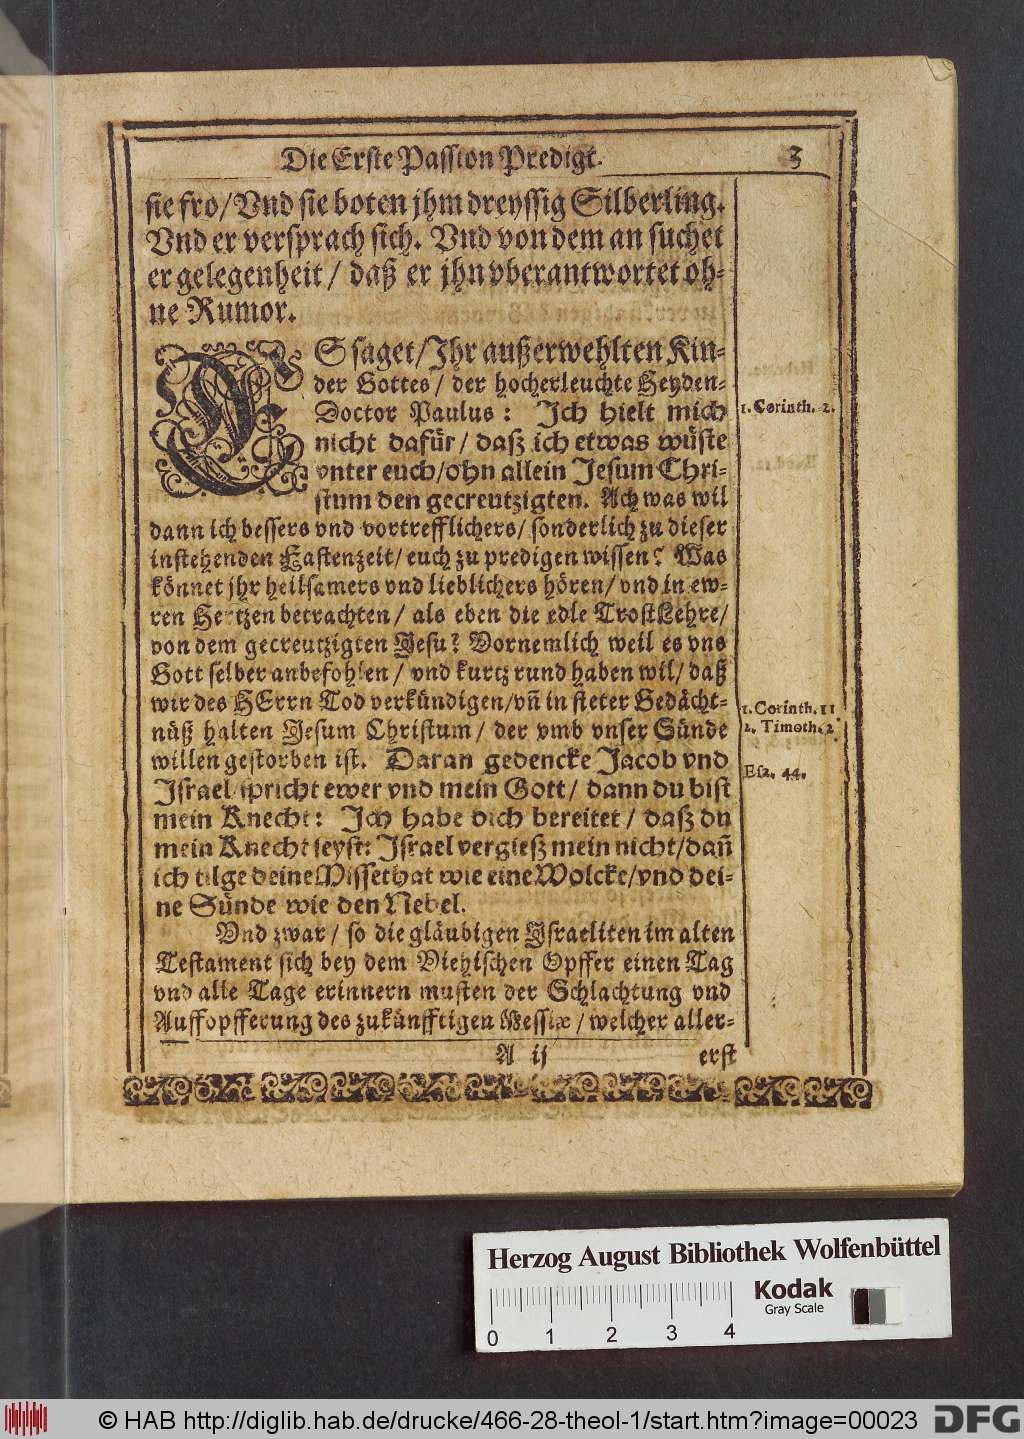 Die Erste Passion Predigt. 3
sie fro/ Vnd sie boten jhm dreyssig Silberling.
Vnd er versprach sich. Vnd von dem an suchet
er gelegenheit/ daß er jhn vberantwortet oh-
ne Rumor.
ES saget/ Ihr außerwehlten Kin-
der Gottes/ der hocherleuchte Heyden-
Doctor Paulus: Ich hielt mich
nicht dafür/ daß ich etwas wüste
vnter euch/ ohn allein Jesum Chri-
stum den gecreutzigten. Ach was wil
dann ich bessers vnd vortrefflichers/ sonderlich zu dieser
instehenden Fastenzeit/ euch zu predigen wissen? Was
könnet jhr heilsamers vnd lieblichers hören/ vnd in ew-
ren Hertzen betrachten/ als eben die edle TrostLehre/
von dem gecreutzigten Jesu? Vornemlich weil es vns
Gott selber anbefohlen/ vnd kurtz rund haben wil/ daß
wir des HErrn Tod verkündigen/ vñ in steter Gedächt-
nüß halten Jesum Christum/ der vmb vnser Sünde
willen gestorben ist. Daran gedencke Jacob vnd
Israel/ spricht ewer vnd mein Gott/ dann du bist
mein Knecht: Ich habe dich bereitet/ daß du
mein Knecht seyst: Israel vergieß mein nicht/ dañ
ich tilge deine Missethat wie eine Wolcke/ vnd dei-
ne Sünde wie den Nebel.
Vnd zwar/ so die gläubigen Israeliten im alten
Testament sich bey dem Viehischen Opffer einen Tag
vnd alle Tage erinnern musten der Schlachtung vnd
Auffopfferung des zukünfftigen Messiæ/ welcher aller-
A ij erst
1. Corinth. 2.
1. Corinth. 11
2. Timoth. 2.
Esa. 44.
Herzog August Bibliothek Wolfenbüttel
Kodak
Gray Scale
0 1 2 3 4
© HAB http://diglib.hab.de/drucke/466-28-theol-1/start.htm?image=00023
DFG